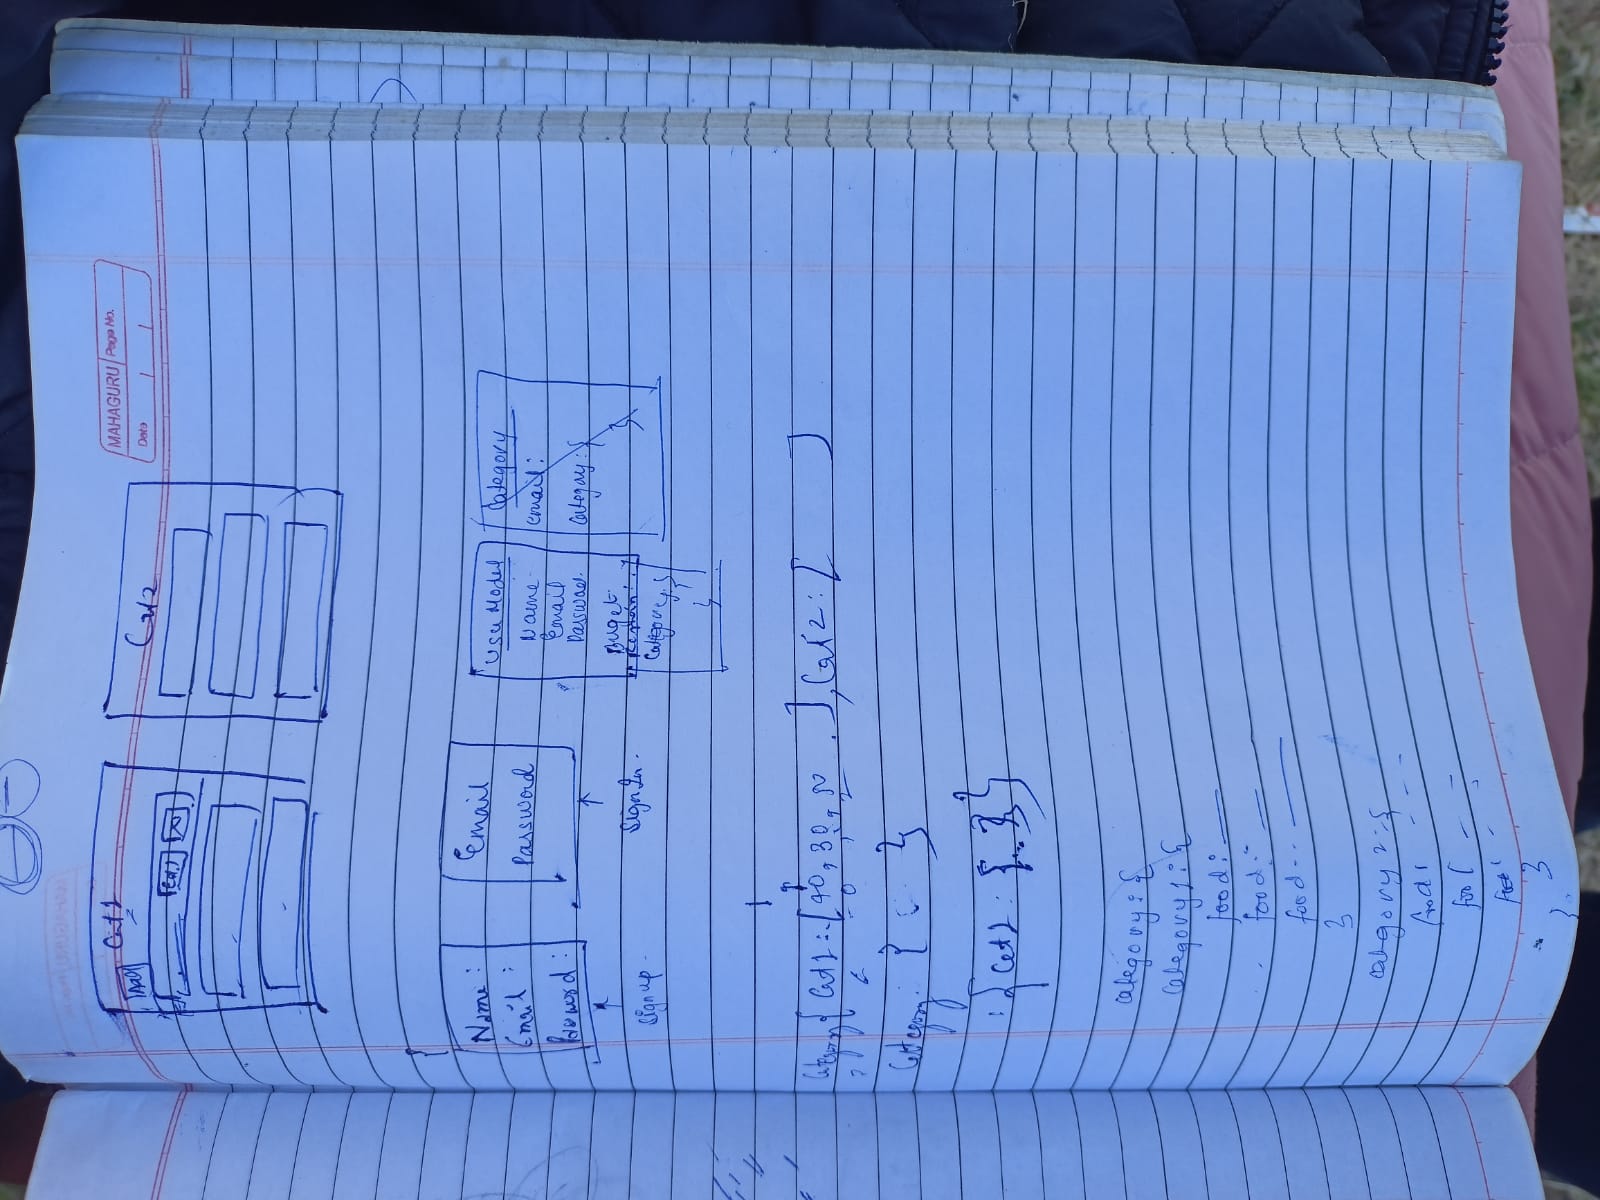 MAHAGURU Page No.
Date
Cat 1
Cat 2
Add
Edit
X
Name:
Email:
Password:
Sign up.
Email
Password
Sign In.
User Model
Name
Email
Password
Buget:
Category: {
}
Category
email:
Category: {
}
Category { Cat 1: [40, 30, 50 . ], Cat 2: [ ]
Category: { }
: { Cat 1: { } }
category: {
category 1: {
food: —
food: —
food: —
}
category 2: {
food:
food
food:
}
}